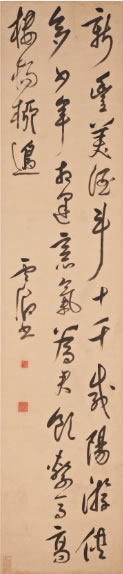 新豐美酒斗十千咸陽游俠
多少年相逢意氣為君飲繫馬高
樓楊柳邊
書